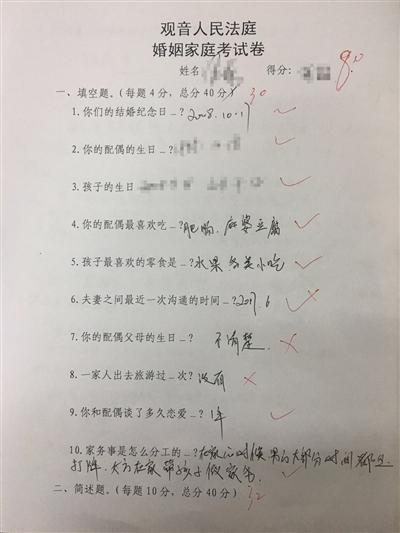 观音人民法庭
婚姻家庭考试卷
姓名 得分: 80
一、填空题。(每题4分，总分40分) 30
1.你们的结婚纪念日_? 2008.10.17
2.你的配偶的生日_?
3.孩子的生日
4.你的配偶最喜欢吃_? 肥肠、麻婆豆腐
5.孩子最喜欢的零食是_? 水果 各类小吃
6.夫妻之间最近一次沟通的时间_? 2017.6
7.你的配偶父母的生日_? 不清楚
8.一家人出去旅游过_次? 没有
9.你和配偶谈了多久恋爱_? 1年
10.家务事是怎么分工的_? 在家的时候 男的大部分时间都是
打牌、女方在家带孩子做家务
二、简述题。(每题10分，总分40分) 32